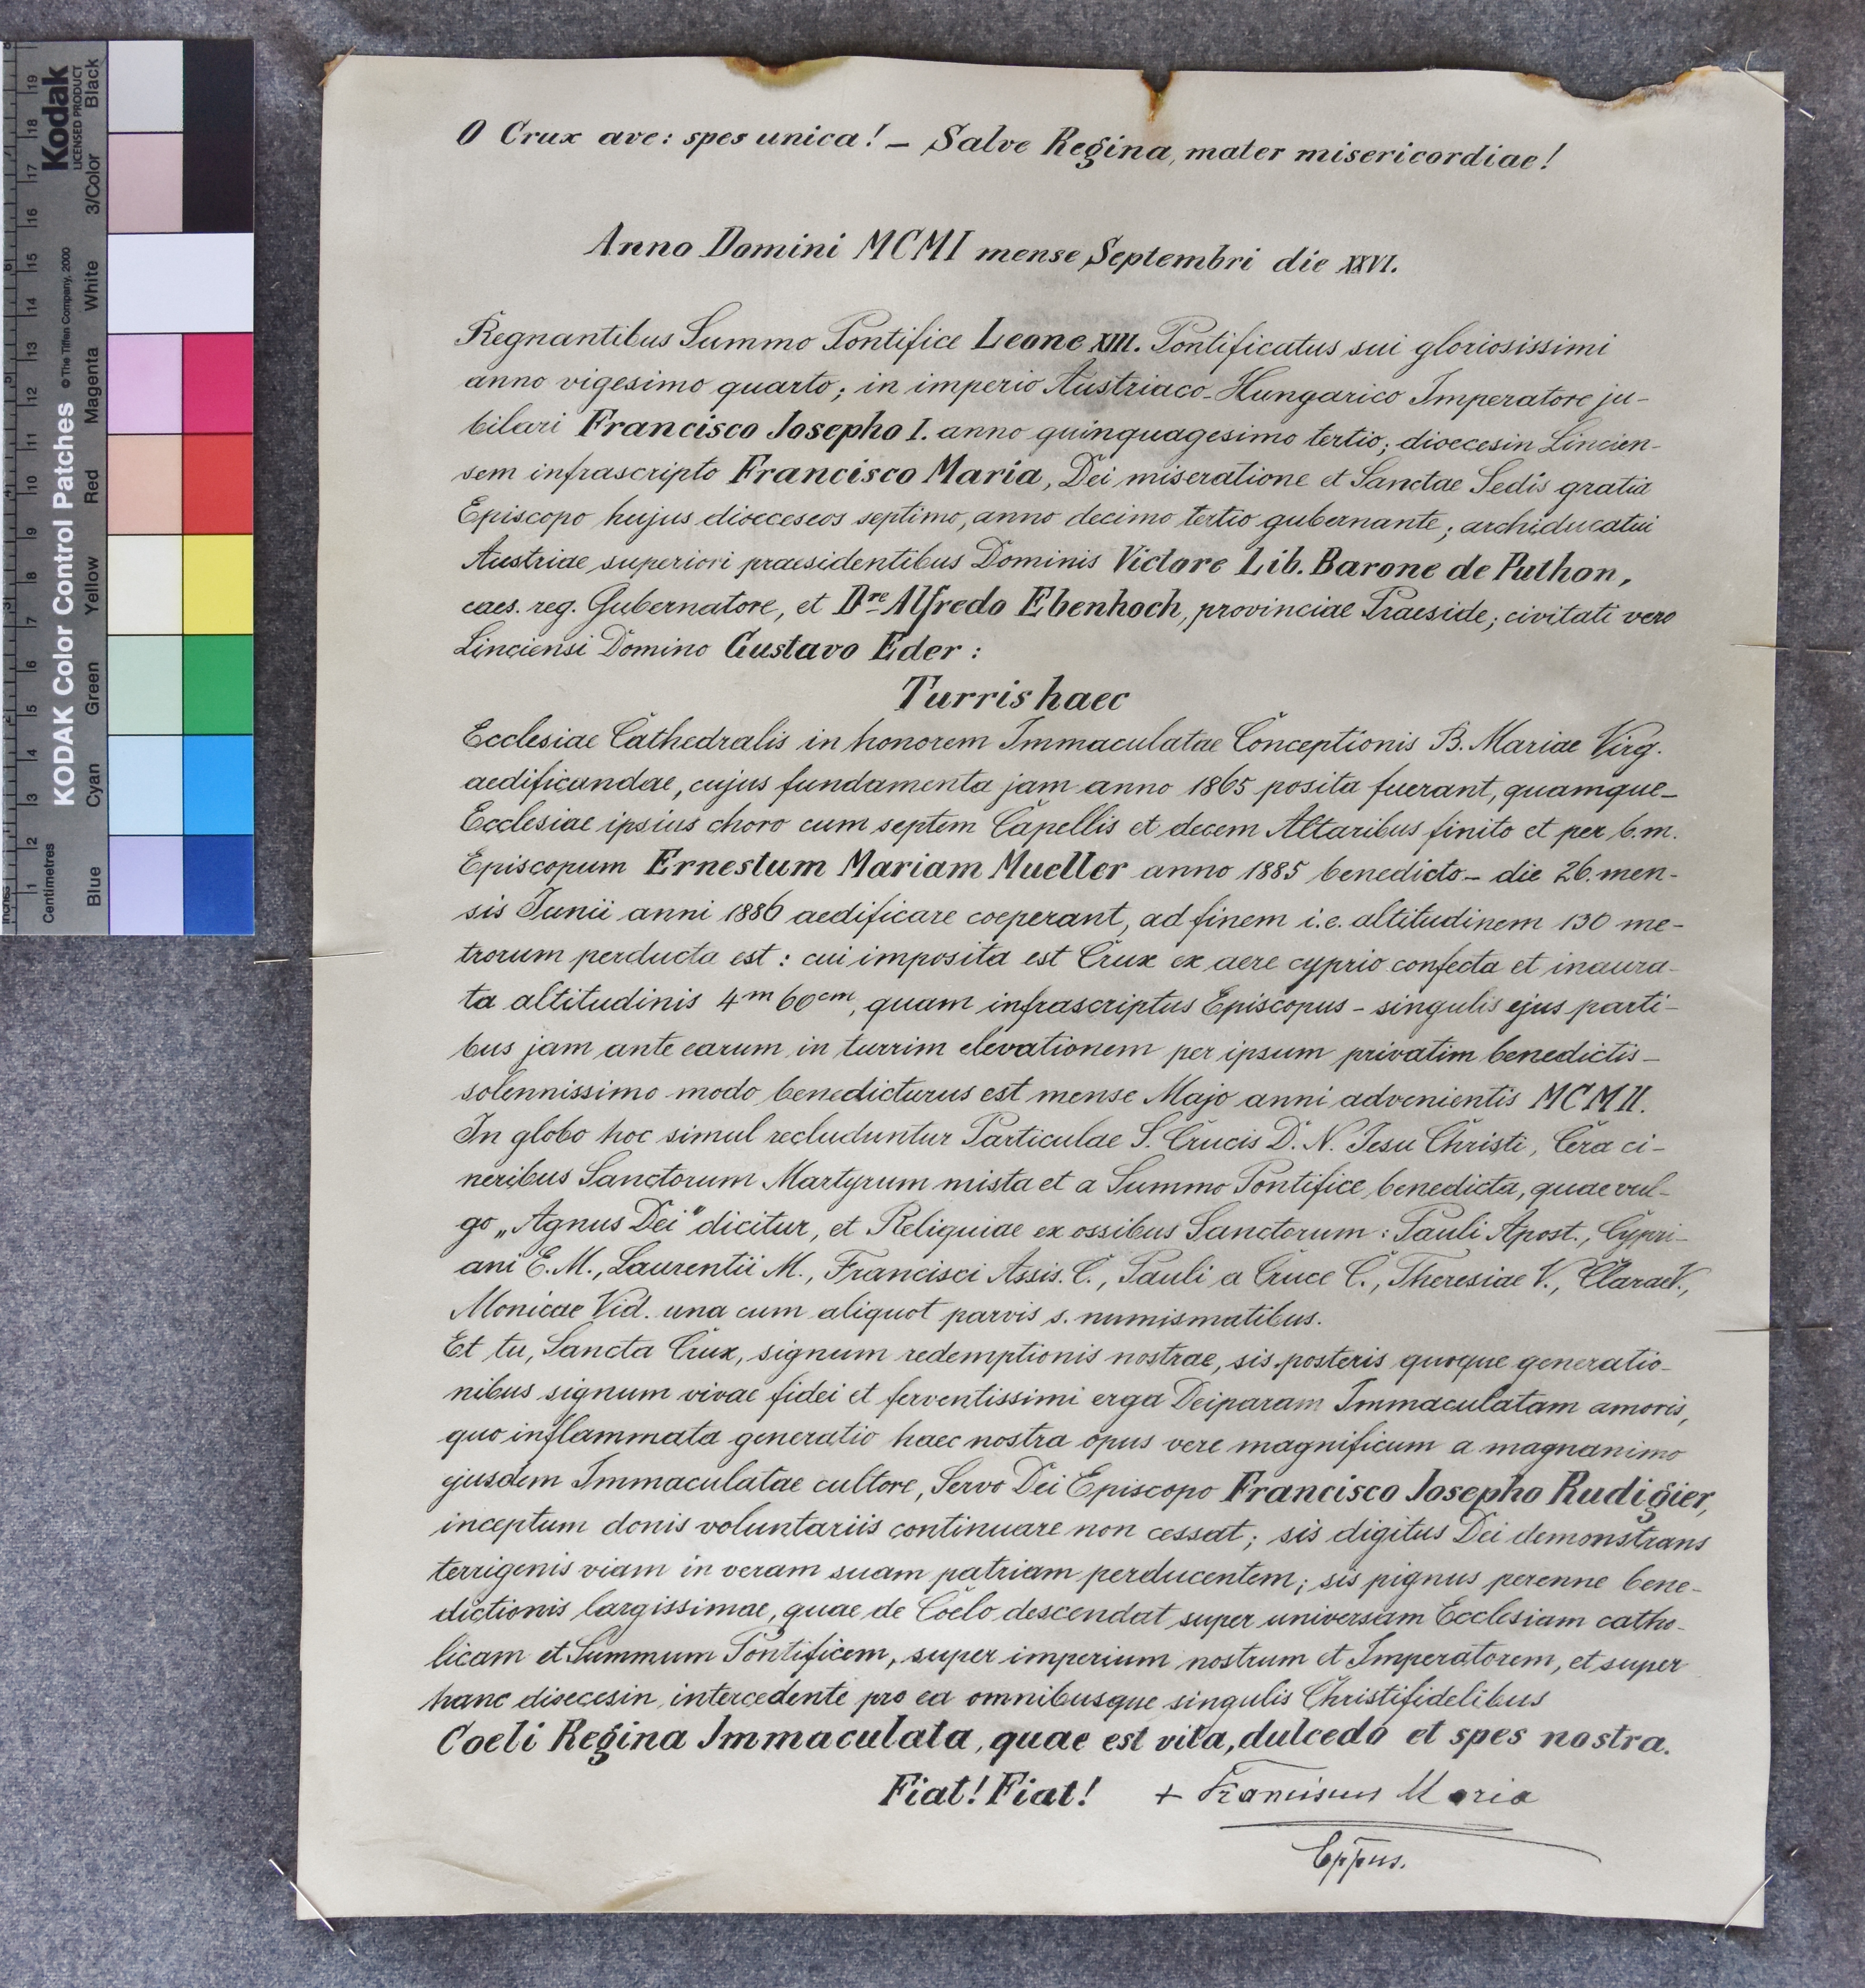 O Crux ave: spes unica! – Salve Regina, mater misericordiae!
Anno Domini MCMI mense Septembri die XXVI.
Regnantibus Summo Pontifice Leone XIII. Pontificatus sui gloriosissimi
anno vigesimo quarto; in imperio Austriaco-Hungarico Imperatore ju-
bilari Francisco Josepho I. anno quinquagesimo tertio; dioecesin Lincien-
sem infrascripto Francisco Maria, Dei miseratione et Sanctae Sedis gratia
Episcopo hujus dioeceseos septimo, anno decimo tertio gubernante; archiducatui
Austriae superiori praesidentibus Dominis Victore Lib. Barone de Puthon,
caes. reg. Gubernatore, et Dre Alfredo Ebenhoch, provinciae Praeside; civitati vero
Linciensi Domino Gustavo Eder:
Turris haec
Ecclesiae Cathedralis in honorem Immaculatae Conceptionis B. Mariae Virg.
aedificandae, cujus fundamenta jam anno 1865 posita fuerant, quamque –
Ecclesiae ipsius choro cum septem Capellis et decem Altaribus finito et per b.m.
Episcopum Ernestum Mariam Mueller anno 1885 benedicto – die 26. men-
sis Junii anni 1886 aedificare coeperant, ad finem i.e. altitudinem 130 me-
trorum perducta est: cui imposita est Crux ex aere cyprio confecta et inaura-
ta altitudinis 4m 60cm, quam infrascriptus Episcopus – singulis ejus parti-
bus jam ante earum in turrim elevationem per ipsum privatim benedictis –
solennissimo modo benedicturus est mense Majo anni advenientis MCMII.
In globo hoc simul recluduntur Particulae S. Crucis D. N. Jesu Christi, Cera ci-
neribus Sanctorum Martyrum mista et a Summo Pontifice benedicta, quae vul-
go „Agnus Dei" dicitur, et Reliquiae ex ossibus Sanctorum: Pauli Apost., Cypri-
ani E.M., Laurentii M., Francisci Assis. C., Pauli a Cruce C., Theresiae V., Clarae V.,
Monicae Vid. una cum aliquot parvis s. numismatibus.
Et tu, Sancta Crux, signum redemptionis nostrae, sis posteris quoque generatio-
nibus signum vivae fidei et ferventissimi erga Deiparam Immaculatam amoris,
quo inflammata generatio haec nostra opus vere magnificum a magnanimo
ejusdem Immaculatae cultore, Servo Dei Episcopo Francisco Josepho Rudigier,
inceptum donis voluntariis continuare non cessat; sis digitus Dei demonstrans
terrigenis viam in veram suam patriam perducentem; sis pignus perenne bene-
dictionis largissimae, quae de Coelo descendat super universam Ecclesiam catho-
licam et Summum Pontificem, super imperium nostrum et Imperatorem, et super
hanc dioecesin, intercedente pro ea omnibusque singulis Christifidelibus
Coeli Regina Immaculata, quae est vita, dulcedo et spes nostra.
Fiat! Fiat! + Franciscus Maria
Eppus.
KODAK Color Control Patches © The Tiffen Company, 2000
Kodak
LICENSED PRODUCT
Inches
Centimetres
1 2 3 4 5 6 7 8 9 10 11 12 13 14 15 16 17 18 19
Blue Cyan Green Yellow Red Magenta White 3/Color Black